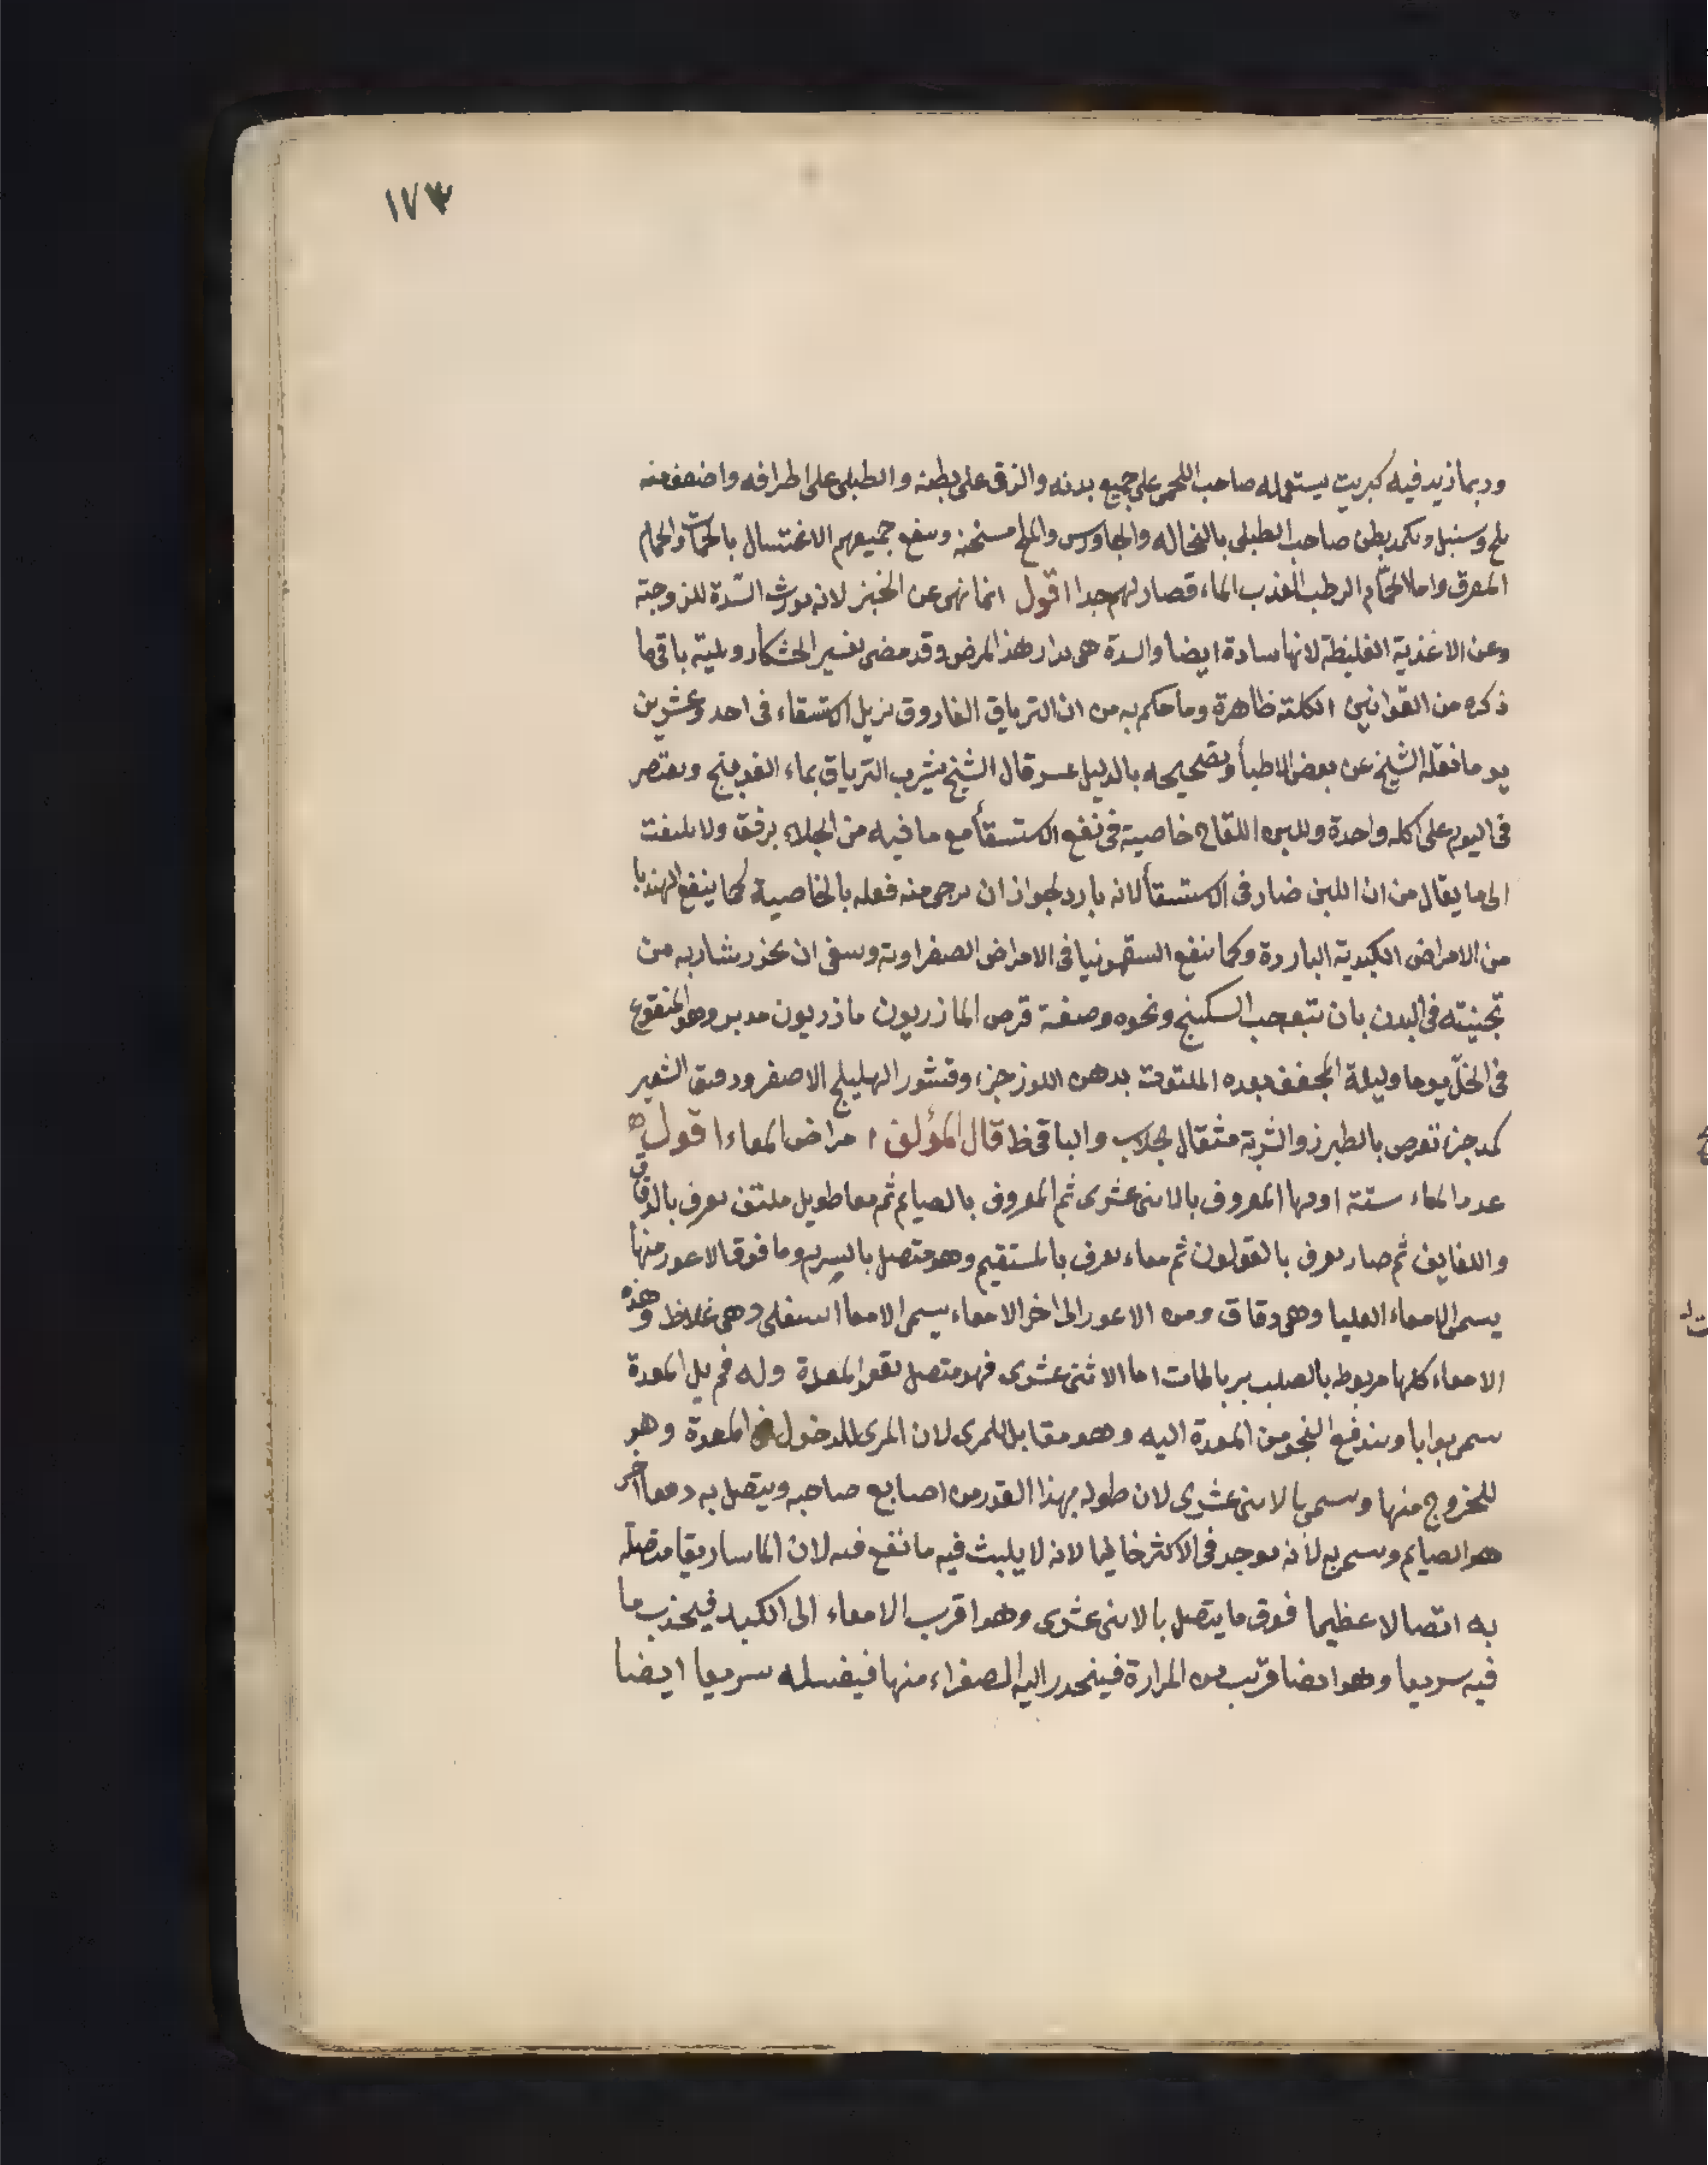 ١٧٣
وربما زيد فيه كبريت يستعمله صاحب اللحمى على جميع بدنه والزقى على بطنه والطبلى على اطرافه واضعف منه
ملح وسنبل وتكمد بطن صاحب الطبلى بالنخاله والجاورس والملح مسخنه وينفع جميعهم الاغتسال بالحمات والحمام
المعرق واما الحمّام الرطب العذب الماء فضار لهم جدا اقول انما نهى عن الخبز لانه يورث السّدة للزوجته
وعن الاغذية الغليظة لانها سادة ايضا والسدة هى مدار هذا المرض وقد مضى تفسير الخشكار وملية باقى ما
ذكره من القوانين الكلية ظاهرة وما حكم به من ان الترياق الفاروق يزيل الاستسقاء فى احد وعشرين
يوما نقله الشيخ عن بعض الاطبأ وتصحيحه بالدليل عسر قال الشيخ يشرب الترياق بماء الفودنج ويقتصر
فى اليوم على اكله واحدة وللبن اللقاح خاصية فى نفع الاستسقأ مع ما فيه من الجلاء برفق ولا يلتفت
الى ما يقال من ان اللبن ضار فى الاستسقأ لانه بارد لجواز ان يرجى منه فعله بالخاصية كما ينفع الهندبا
من الامراض الكبدية الباردة وكما ينفع السقمونيا فى الامراض الصفراوية وينبغى ان يحذر شاربه من
تجبنته فى البدن بان تتبع بحب السكبينج ونحوه وصفة قرص المازريون مازريون مدبر وهو المنقوع
فى الخلّ يوما وليلة المجفف بعده الملتوت بدهن اللوز جزء وقشور الهليلج الاصفر ودقيق الشعير
كمد جزء تقرص بالطبرزد والشربة مثقال بجلاب والباقى ظ قال المؤلف امراض المعاء اقول
عدد المعاء ستة اولها المعروف بالاثنى عشرى ثم المعروف بالصايم ثم معا طويل ملتف يعرف بالدقاق
واللفايف ثم صار يعرف بالقولون ثم معاء يعرف بالمستقيم وهو متصل بالسرم وما فوق الاعور منها
يسمى الامعاء العليا وهى دقاق ومن الاعور الى اخر الامعاء يسمى الامعا السفلى وهى غلاظ وهذه
الامعاء كلها مربوطه بالصلب برباطات اما الاثنى عشرى فهو متصل بقعر المعدة وله فم يلى المعدة
يسمى بوابا ويندفع النجو من المعدة اليه وهو مقابل للمرى لان المرى للدخول فى المعدة وهو
للخروج منها ويسمى بالاثنى عشرى لان طوله بهذا القدر من اصابع صاحبه ويتصل به معا اخر
هو الصايم ويسمى به لأنه يوجد فى الاكثر خاليا لانه لا يلبث فيه ما نفع فيه لان الماساريقا متصلة
به اتصالا عظيما فوق ما يتصل بالاثنى عشرى وهو اقرب الامعاء الى الكبد فيجذب ما
فيه سريعا وهو ايضا قريب من المرارة فينحدر اليه الصفراء منها فيغسله سريعا ايضا